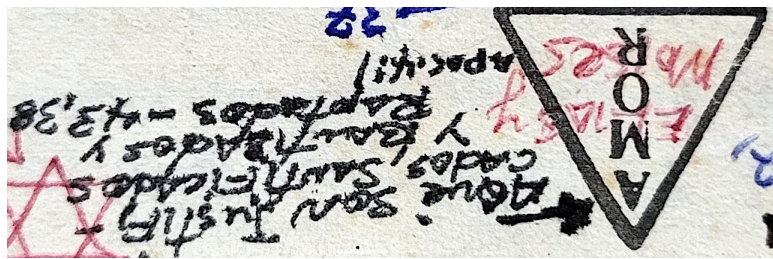 A
M
O
R
ELIAS Y
MOISES
AQUI SON JUSTIFI-
CADOS SANTIFICADOS
Y BAUTIZADOS Y
RAPTADOS - 43,38
APOC,4:1
37